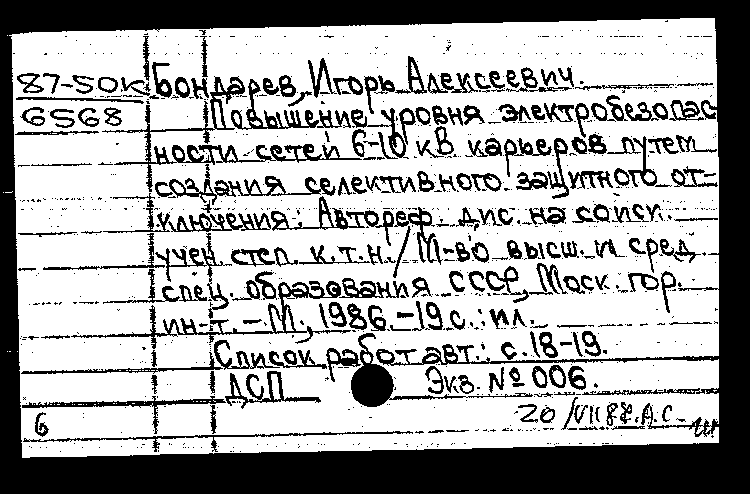 87-50к Бондарев, Игорь Алексеевич.
6568 Повышение уровня электробезопас
ности сетей 6-10 кВ карьеров путем
создания селективного защитного от-
ключения: Автореф. дис. на соиск.
учен. степ. к.т.н. / М-во высш. и сред.
спец. образования СССР, Моск. гор.
ин-т. – М., 1986. – 19 с.: ил.
Список работ авт.: с. 18-19.
ДСП Экз. № 006.
6 20/VII 87. А.С.